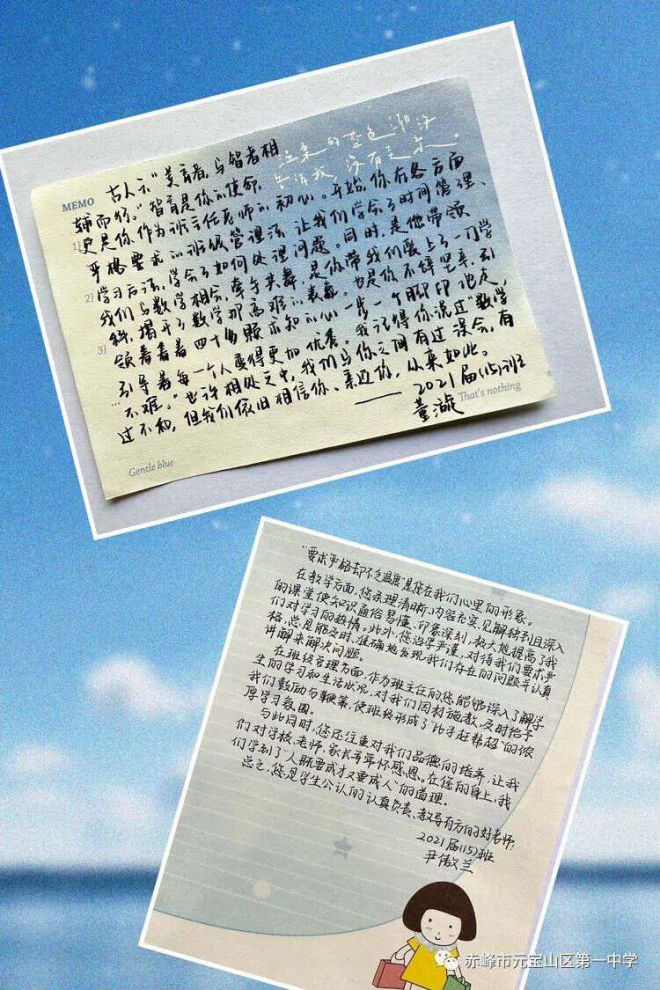 往来的蓝色潮汐
告诉我，没有走失。
MEMO
古人云“美言者，与智者相
辅而好。”皆育是你的使命，
更是你作为班主任老师的初心。开始，你在各方面
1) 严格要求的班级管理法，让我们学会了时间管理、
学习方法，学会了如何处理问题。同时，是你带领
2) 我们与数学相会，牵手共舞，是你带我们爱上了一门学
科，揭开了数学那高难的表象。也是你不辞艰辛，引
3) 领着着四十多颗求知的心一步一个脚印地走，
引导着每一个人变得更加优秀。我记得你说过“数学
不难。”也许相处之中，我们与你之间有过误会，有
过不和，但我们依旧相信你、亲近你，从来如此。
——2021届(15)班
董漩
That's nothing
Gentle blue
“要求严格却不乏温暖”是您在我们心里的形象。
在教学方面，您条理清晰、内容充实、见解独到且深入
的课堂使知识通俗易懂、印象深刻，极大地提高了我
们对学习的热情。此外，您治学严谨，对待我们要求严
格，总是能及时、准确地发现我们存在的问题并认真
讲解来解决问题。
在班级管理方面，作为班主任的您能够深入了解学
生的学习和生活状况，对我们因材施教，及时给予
我们鼓励与鞭策，使班级形成了“比学赶帮超”的浓
厚学习氛围。
与此同时，您还注重对我们品德的培养，让我
们对学校、老师、家长等常怀感恩。在您的身上，我
们学到了“人既要成才又要成人”的道理。
总之，您是学生公认的认真负责、教导有方的好老师！
2021届(15)班
尹俊兰
赤峰市元宝山区第一中学